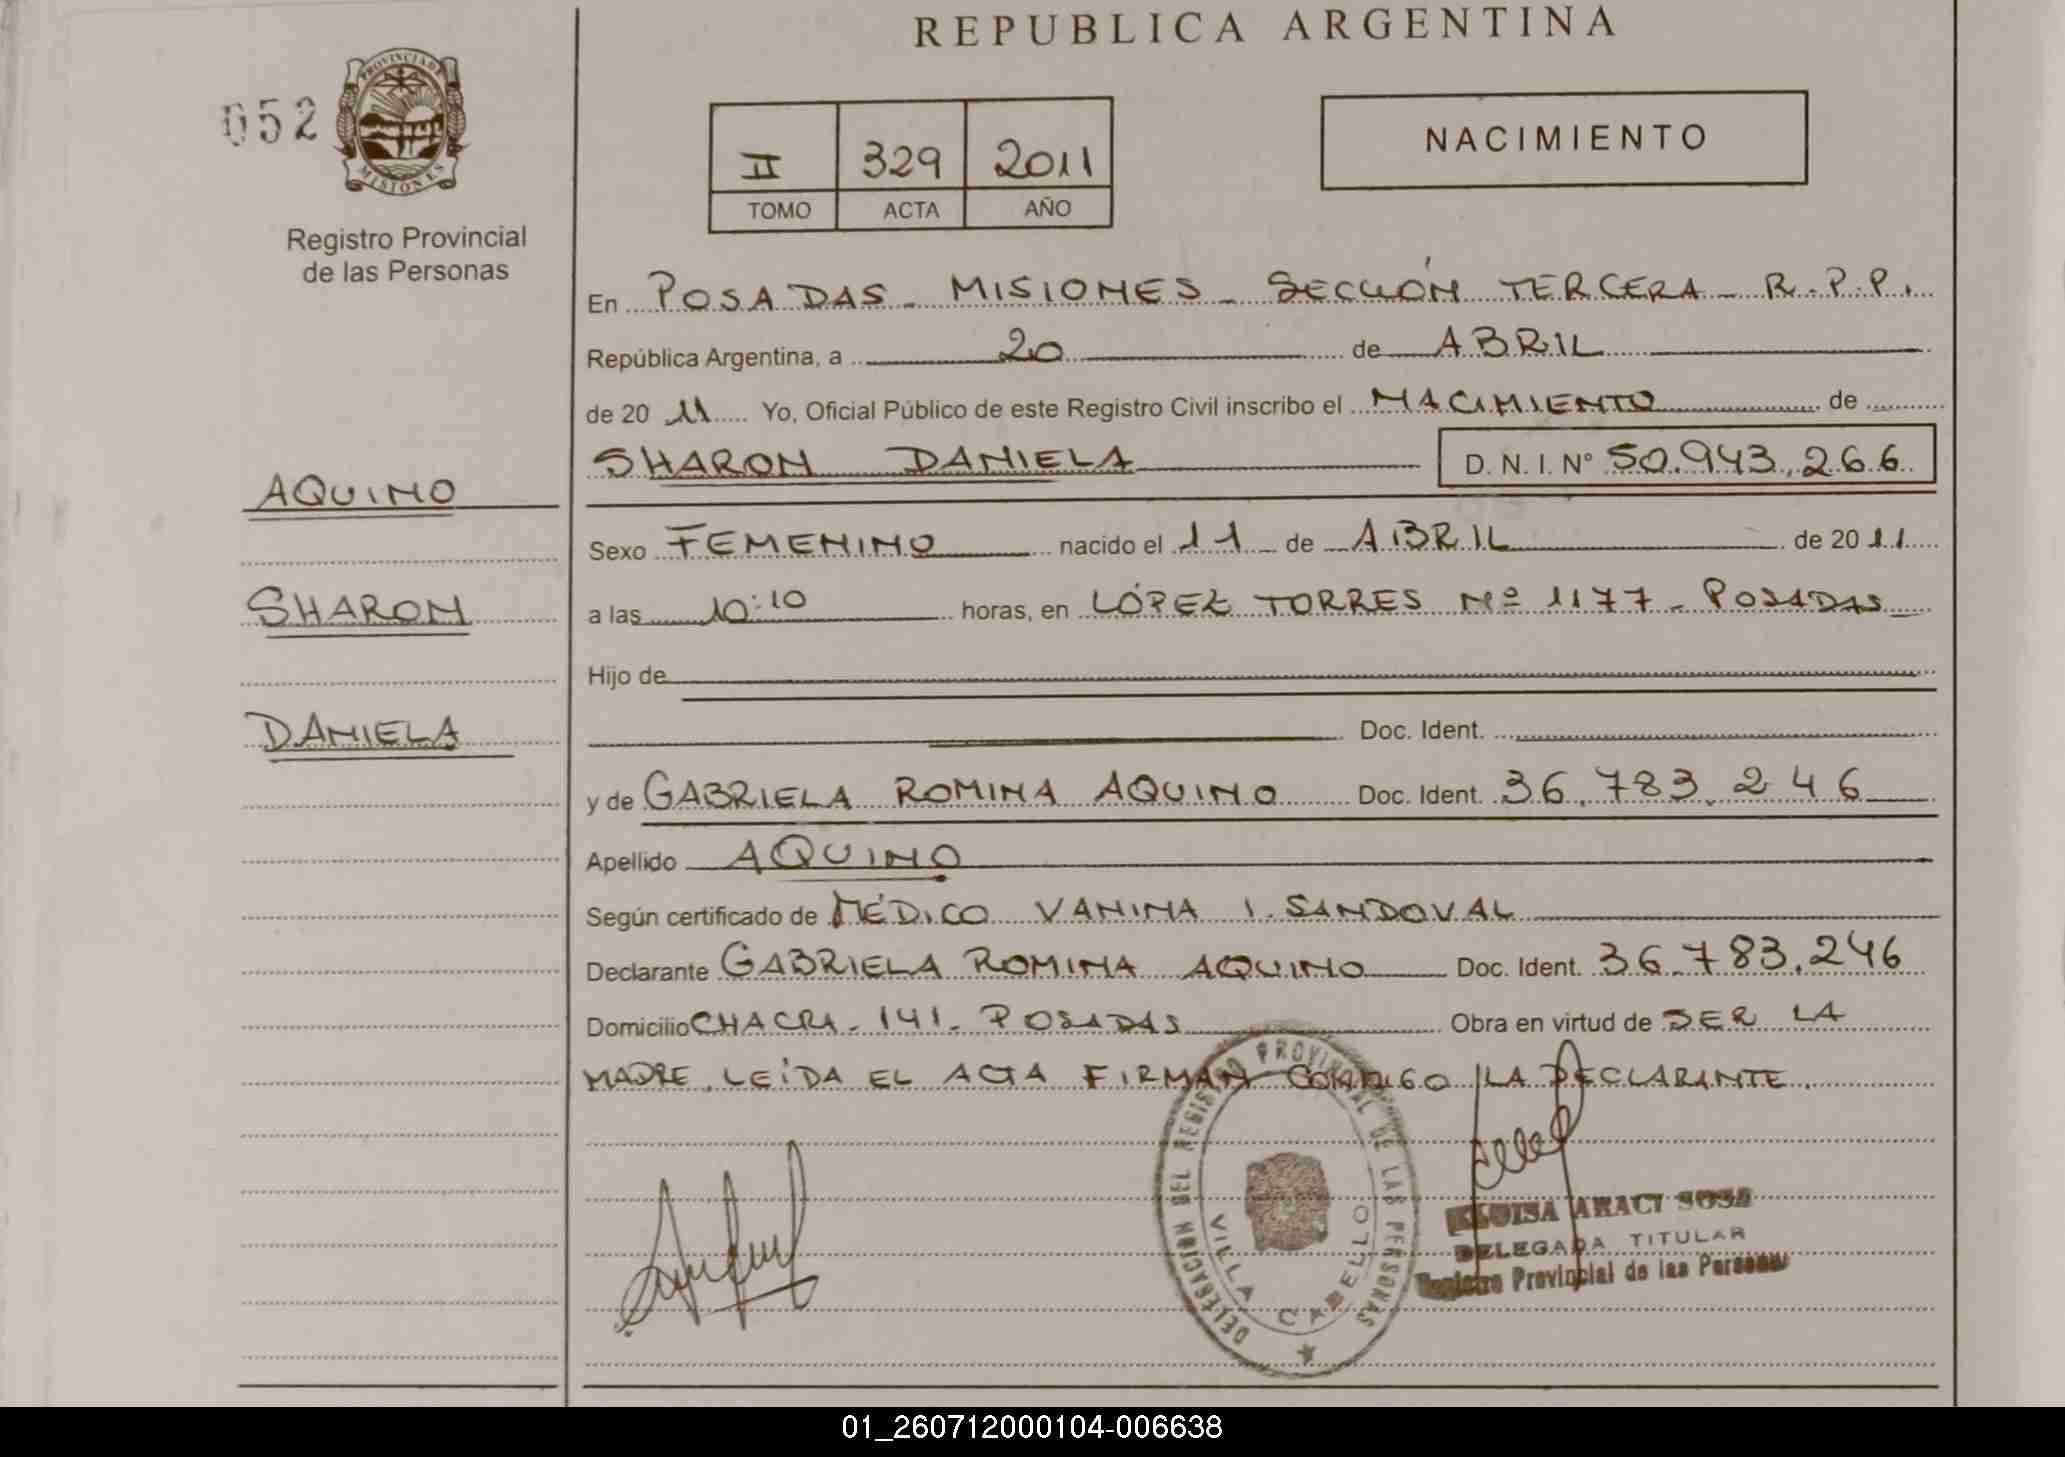 REPUBLICA ARGENTINA
052
PROVINCIA DE
MISIONES
Registro Provincial
de las Personas
II 329 2011
TOMO ACTA AÑO
NACIMIENTO
En POSADAS - MISIONES - SECCIÓN TERCERA - R.P.P.
República Argentina, a 20 de ABRIL
de 20 11 Yo, Oficial Público de este Registro Civil inscribo el NACIMIENTO de
SHARON DANIELA D. N. I. Nº 50.943.266
AQUINO
Sexo FEMENINO nacido el 11 de ABRIL de 20 11
SHARON
a las 10:10 horas, en LÓPEZ TORRES Nº 1177 - POSADAS
Hijo de
DANIELA
Doc. Ident.
y de GABRIELA ROMINA AQUINO Doc. Ident. 36.783.246
Apellido AQUINO
Según certificado de MÉDICO VANINA I. SANDOVAL
Declarante GABRIELA ROMINA AQUINO Doc. Ident. 36.783.246
Domicilio CHACRA - 141 - POSADAS Obra en virtud de SER LA
MADRE. LEÍDA EL ACTA FIRMAN CONMIGO LA DECLARANTE.
DELEGACION DEL REGISTRO PROVINCIAL DE LAS PERSONAS
VILLA CABELLO
ELOISA ARACI SOSA
DELEGADA TITULAR
Registro Provincial de las Personas
01_260712000104-006638